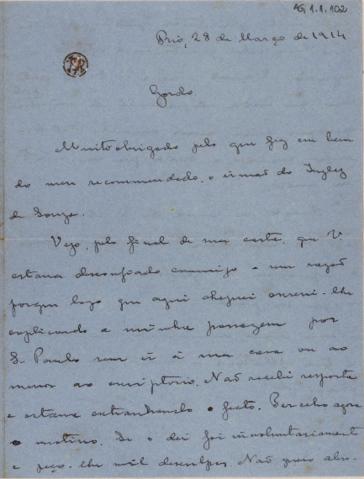 AG 1.1.102
Rio, 28 de Março de 1914
Gordo
Muito obrigado pelo que fez em bem
do meu recommendado, o irmão do Inglez
de Souza.
Vejo, pelo final de sua carta, que V.
estava desconfiado commigo e com razão
porque logo que aqui cheguei escrevi-lhe
explicando a minha passagem por
S. Paulo sem ir á sua casa ou ao
menos ao escriptorio. Não recebi resposta
e estava extranhando o facto. Percebo agora
o motivo. Se o dei foi involuntariamente
e peço-lhe mil desculpas. Não quis abu-